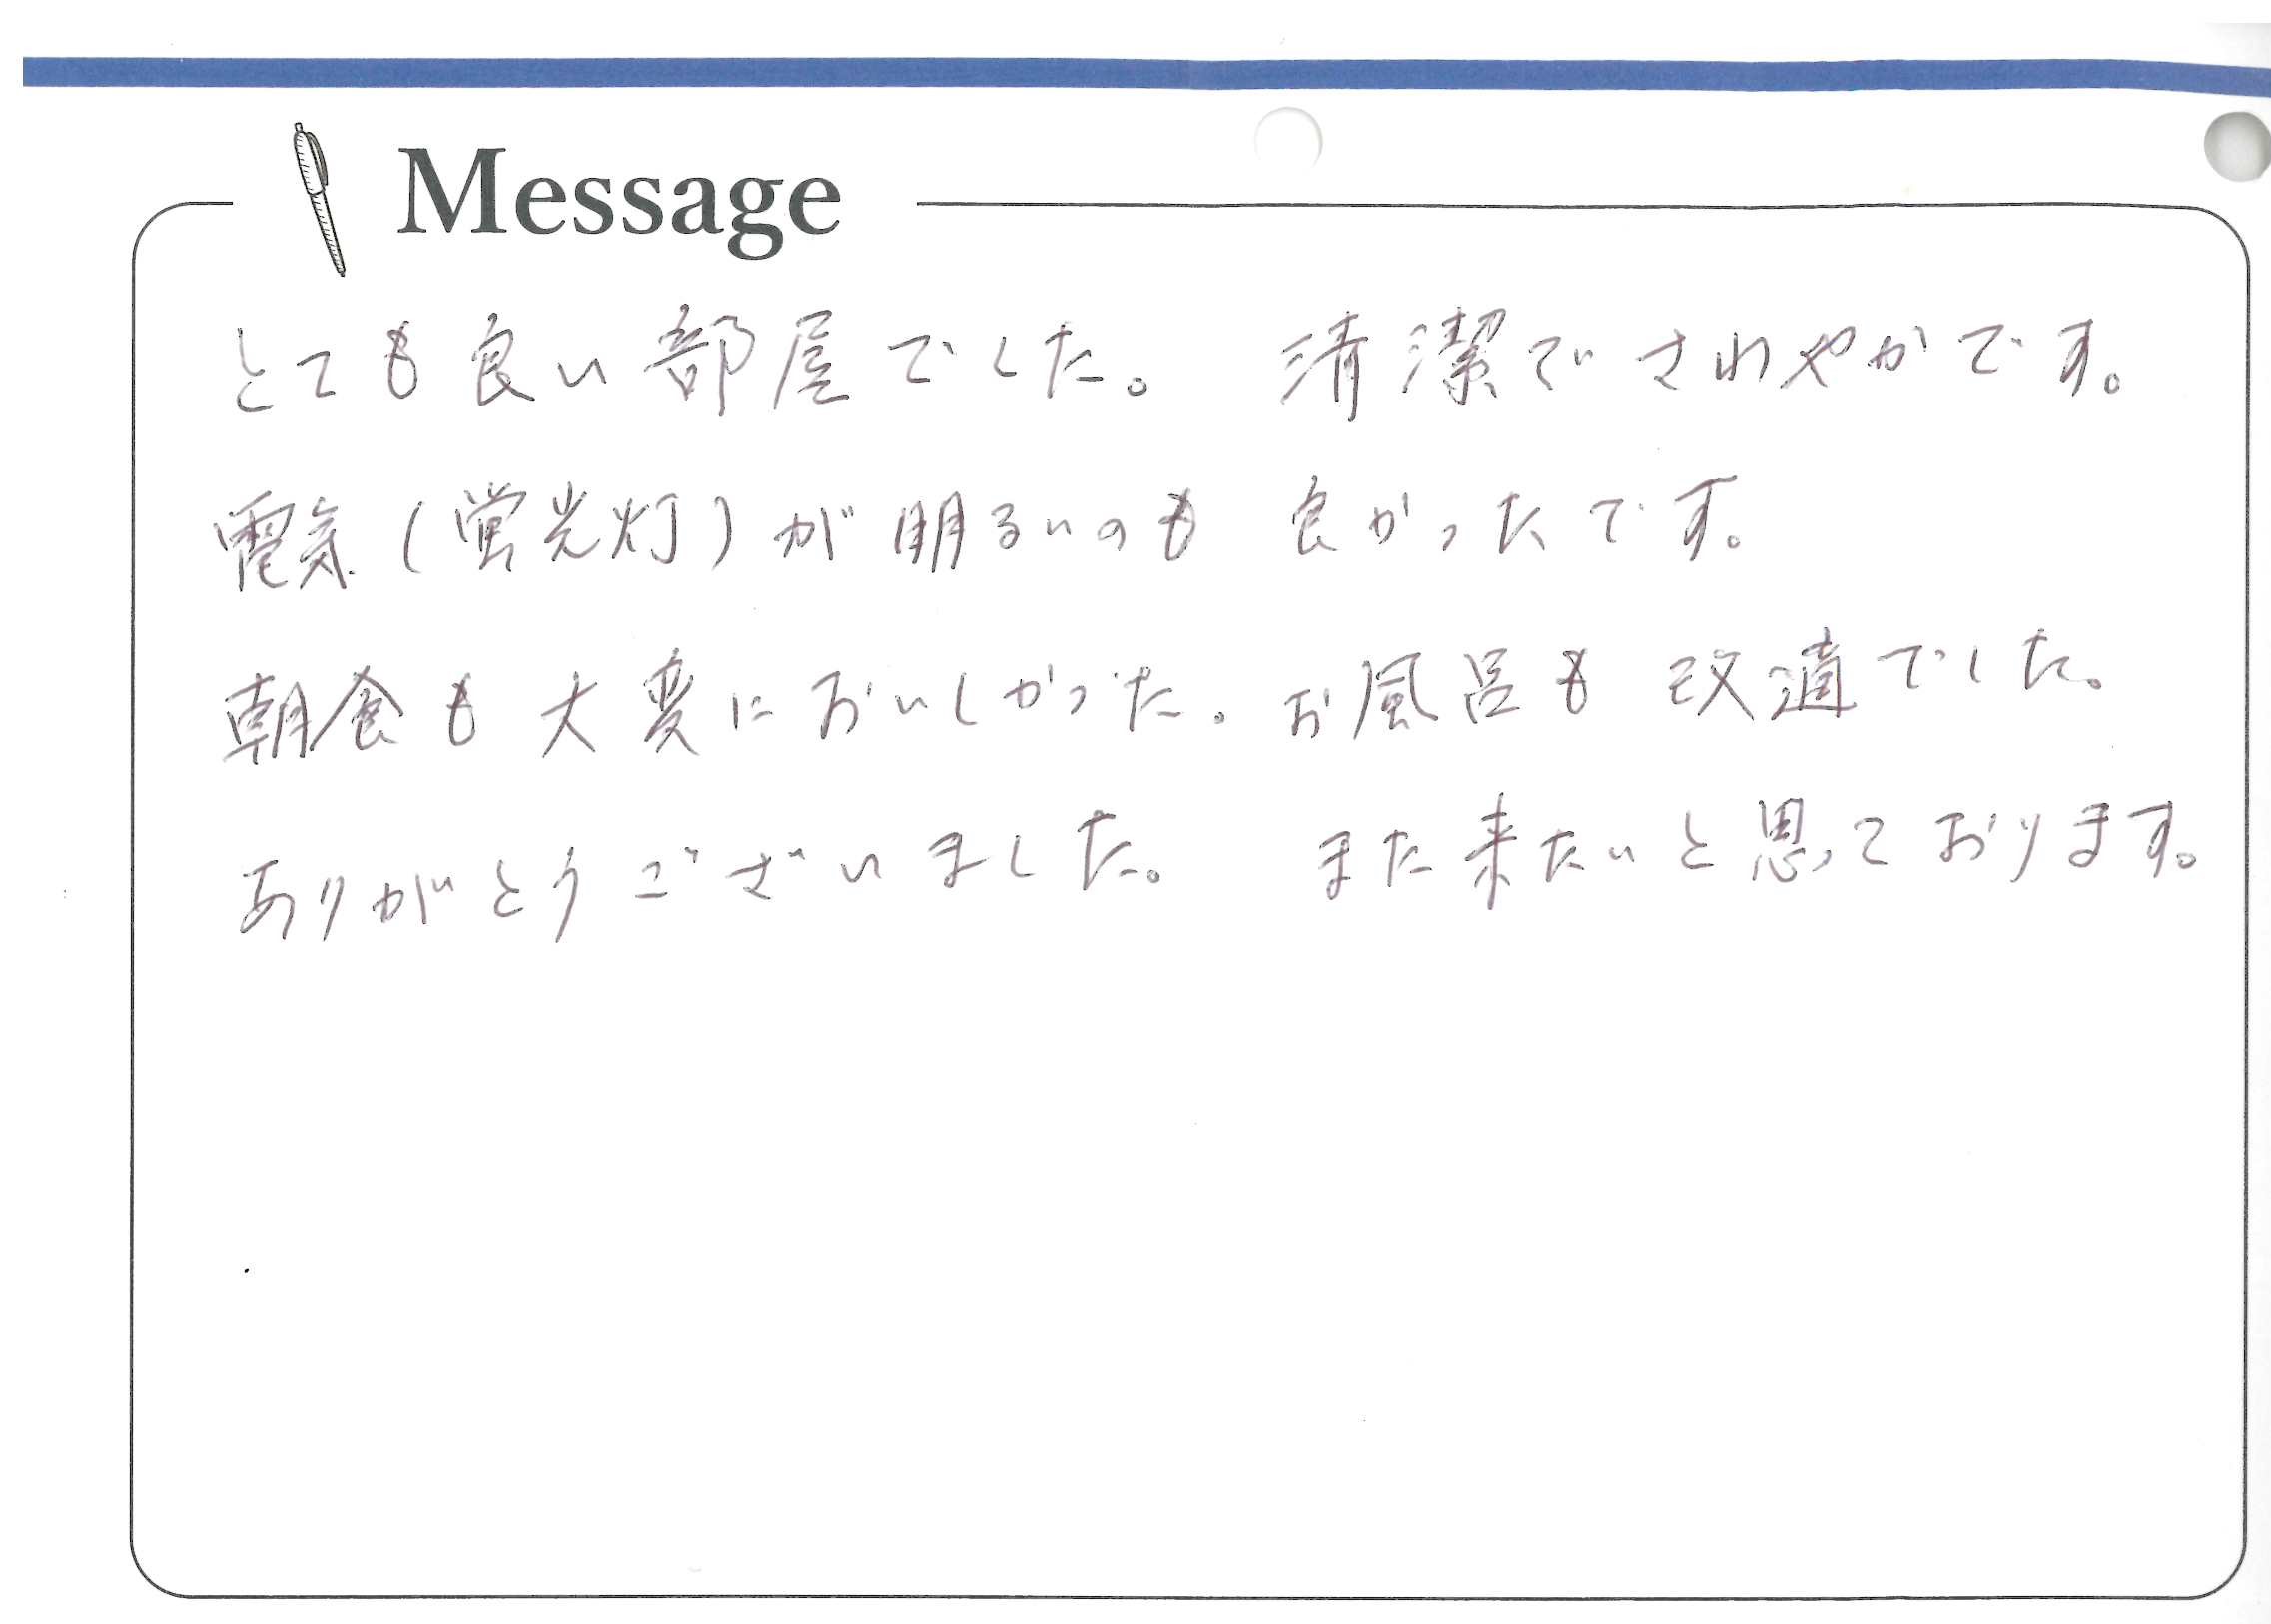 Message
とても良い部屋でした。 清潔でさわやかです。
電気(蛍光灯)が明るいのも 良かったです。
朝食も大変においしかった。お風呂も 改適でした。
ありがとうございました。 また来たいと思っております。